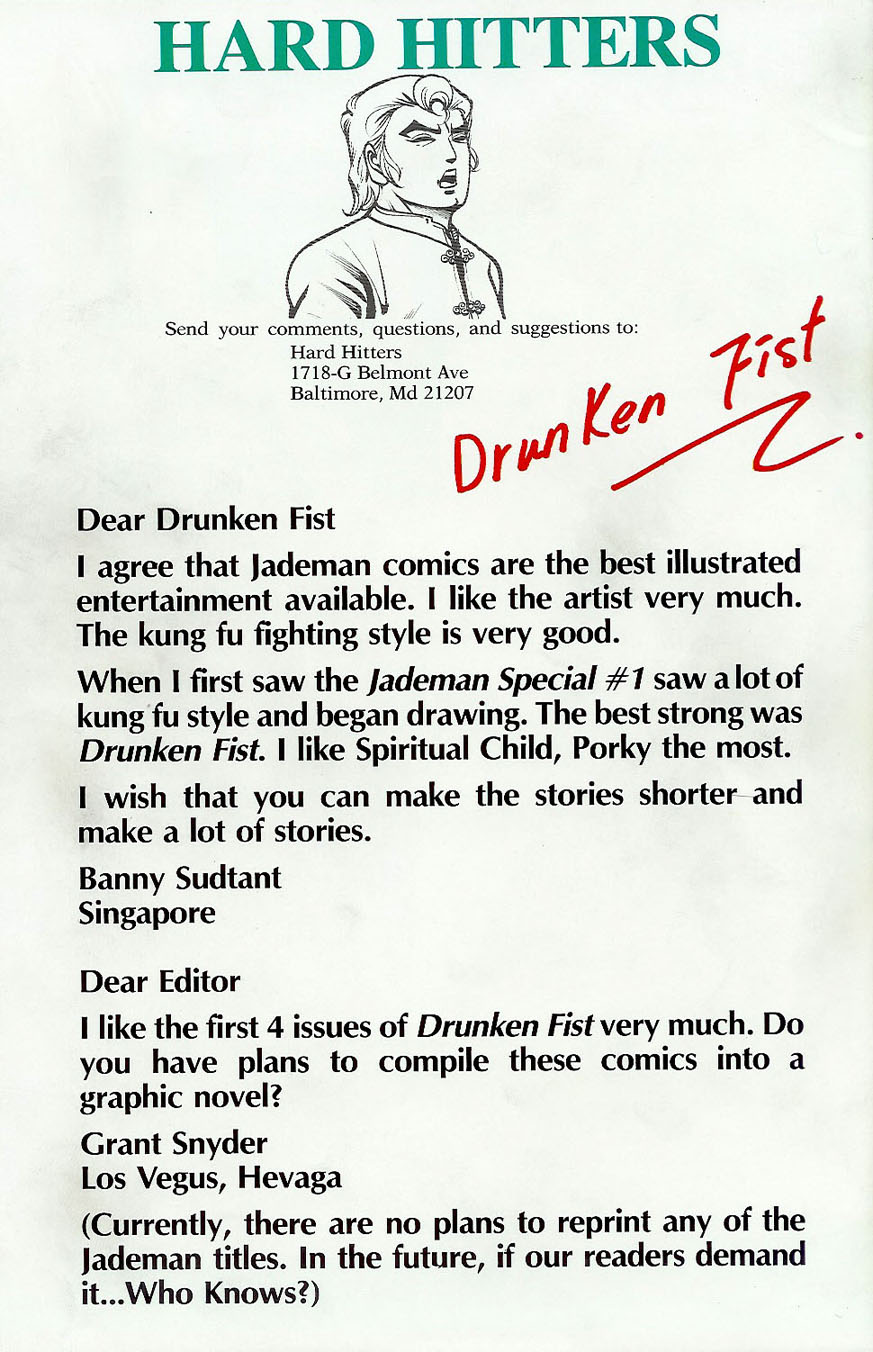 HARD HITTERS
Send your comments, questions, and suggestions to:
Hard Hitters
1718-G Belmont Ave
Baltimore, Md 21207
Drunken Fist
Dear Drunken Fist
I agree that Jademan comics are the best illustrated
entertainment available. I like the artist very much.
The kung fu fighting style is very good.
When I first saw the Jademan Special #1 saw a lot of
kung fu style and began drawing. The best strong was
Drunken Fist. I like Spiritual Child, Porky the most.
I wish that you can make the stories shorter and
make a lot of stories.
Banny Sudtant
Singapore
Dear Editor
I like the first 4 issues of Drunken Fist very much. Do
you have plans to compile these comics into a
graphic novel?
Grant Snyder
Los Vegus, Hevaga
(Currently, there are no plans to reprint any of the
Jademan titles. In the future, if our readers demand
it...Who Knows?)